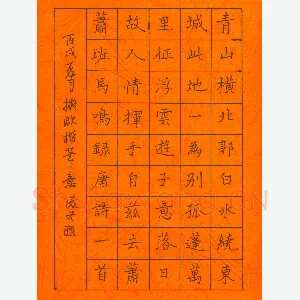 青山橫北郭白水繞東
城此地一為別孤蓬萬
里征浮雲遊子意落日
故人情揮手自茲去蕭
蕭班馬鳴錄唐詩一首
丙戌